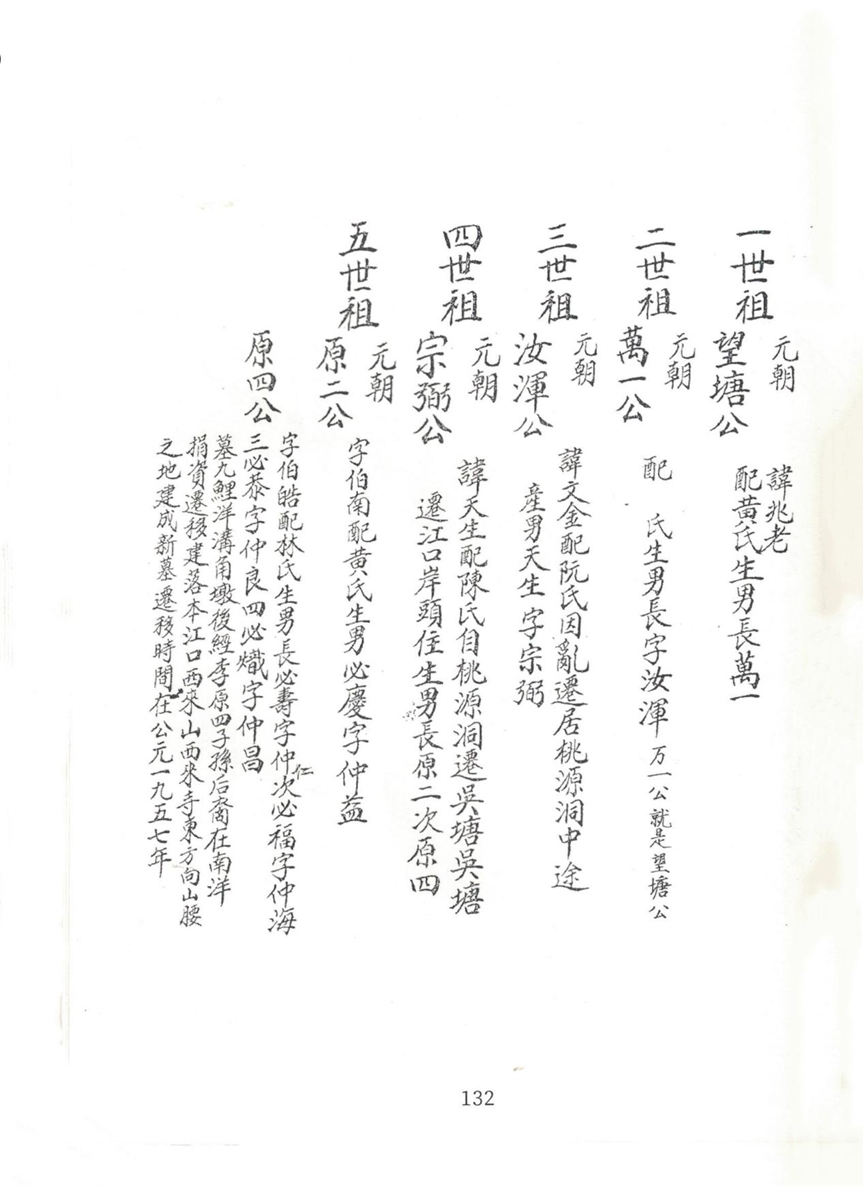 一世祖
元朝
望塘公
諱兆老
配黄氏生男長萬一
二世祖
元朝
萬一公
配 氏生男長字汝渾 万一公就是望塘公
三世祖
元朝
汝渾公
諱文金配阮氏因亂遷居桃源洞中途
產男天生字宗弼
四世祖
元朝
宗弼公
諱天生配陳氏自桃源洞遷吳塘吳塘
遷江口岸頭住生男長原二次原四
五世祖
元朝
原二公
字伯南配黄氏生男必慶字仲益
原四公
字伯皓配林氏生男長必壽字仲仁次必福字仲海
三必恭字仲良四必熾字仲昌
墓九鯉洋溝角墩後經李原四子孫后裔在南洋
捐資遷移建落本江口西來山西來寺東方向山腰
之地建成新墓遷移時間在公元一九五七年
132